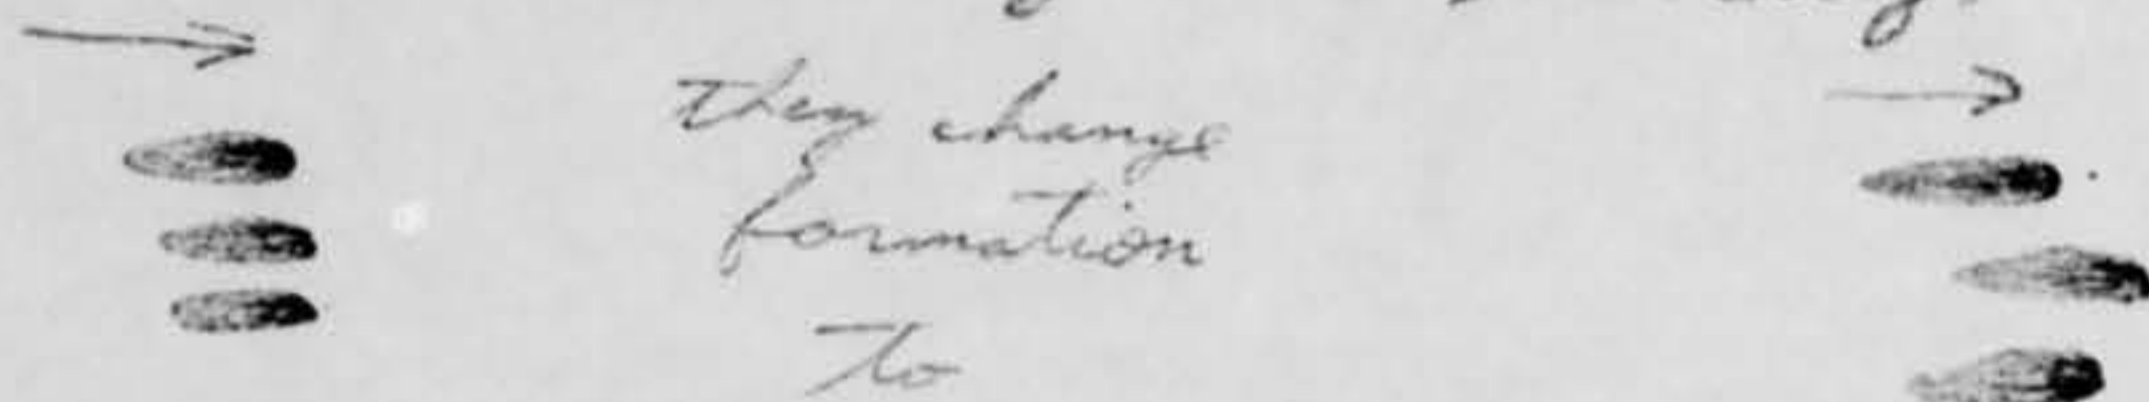 they change
formation
to